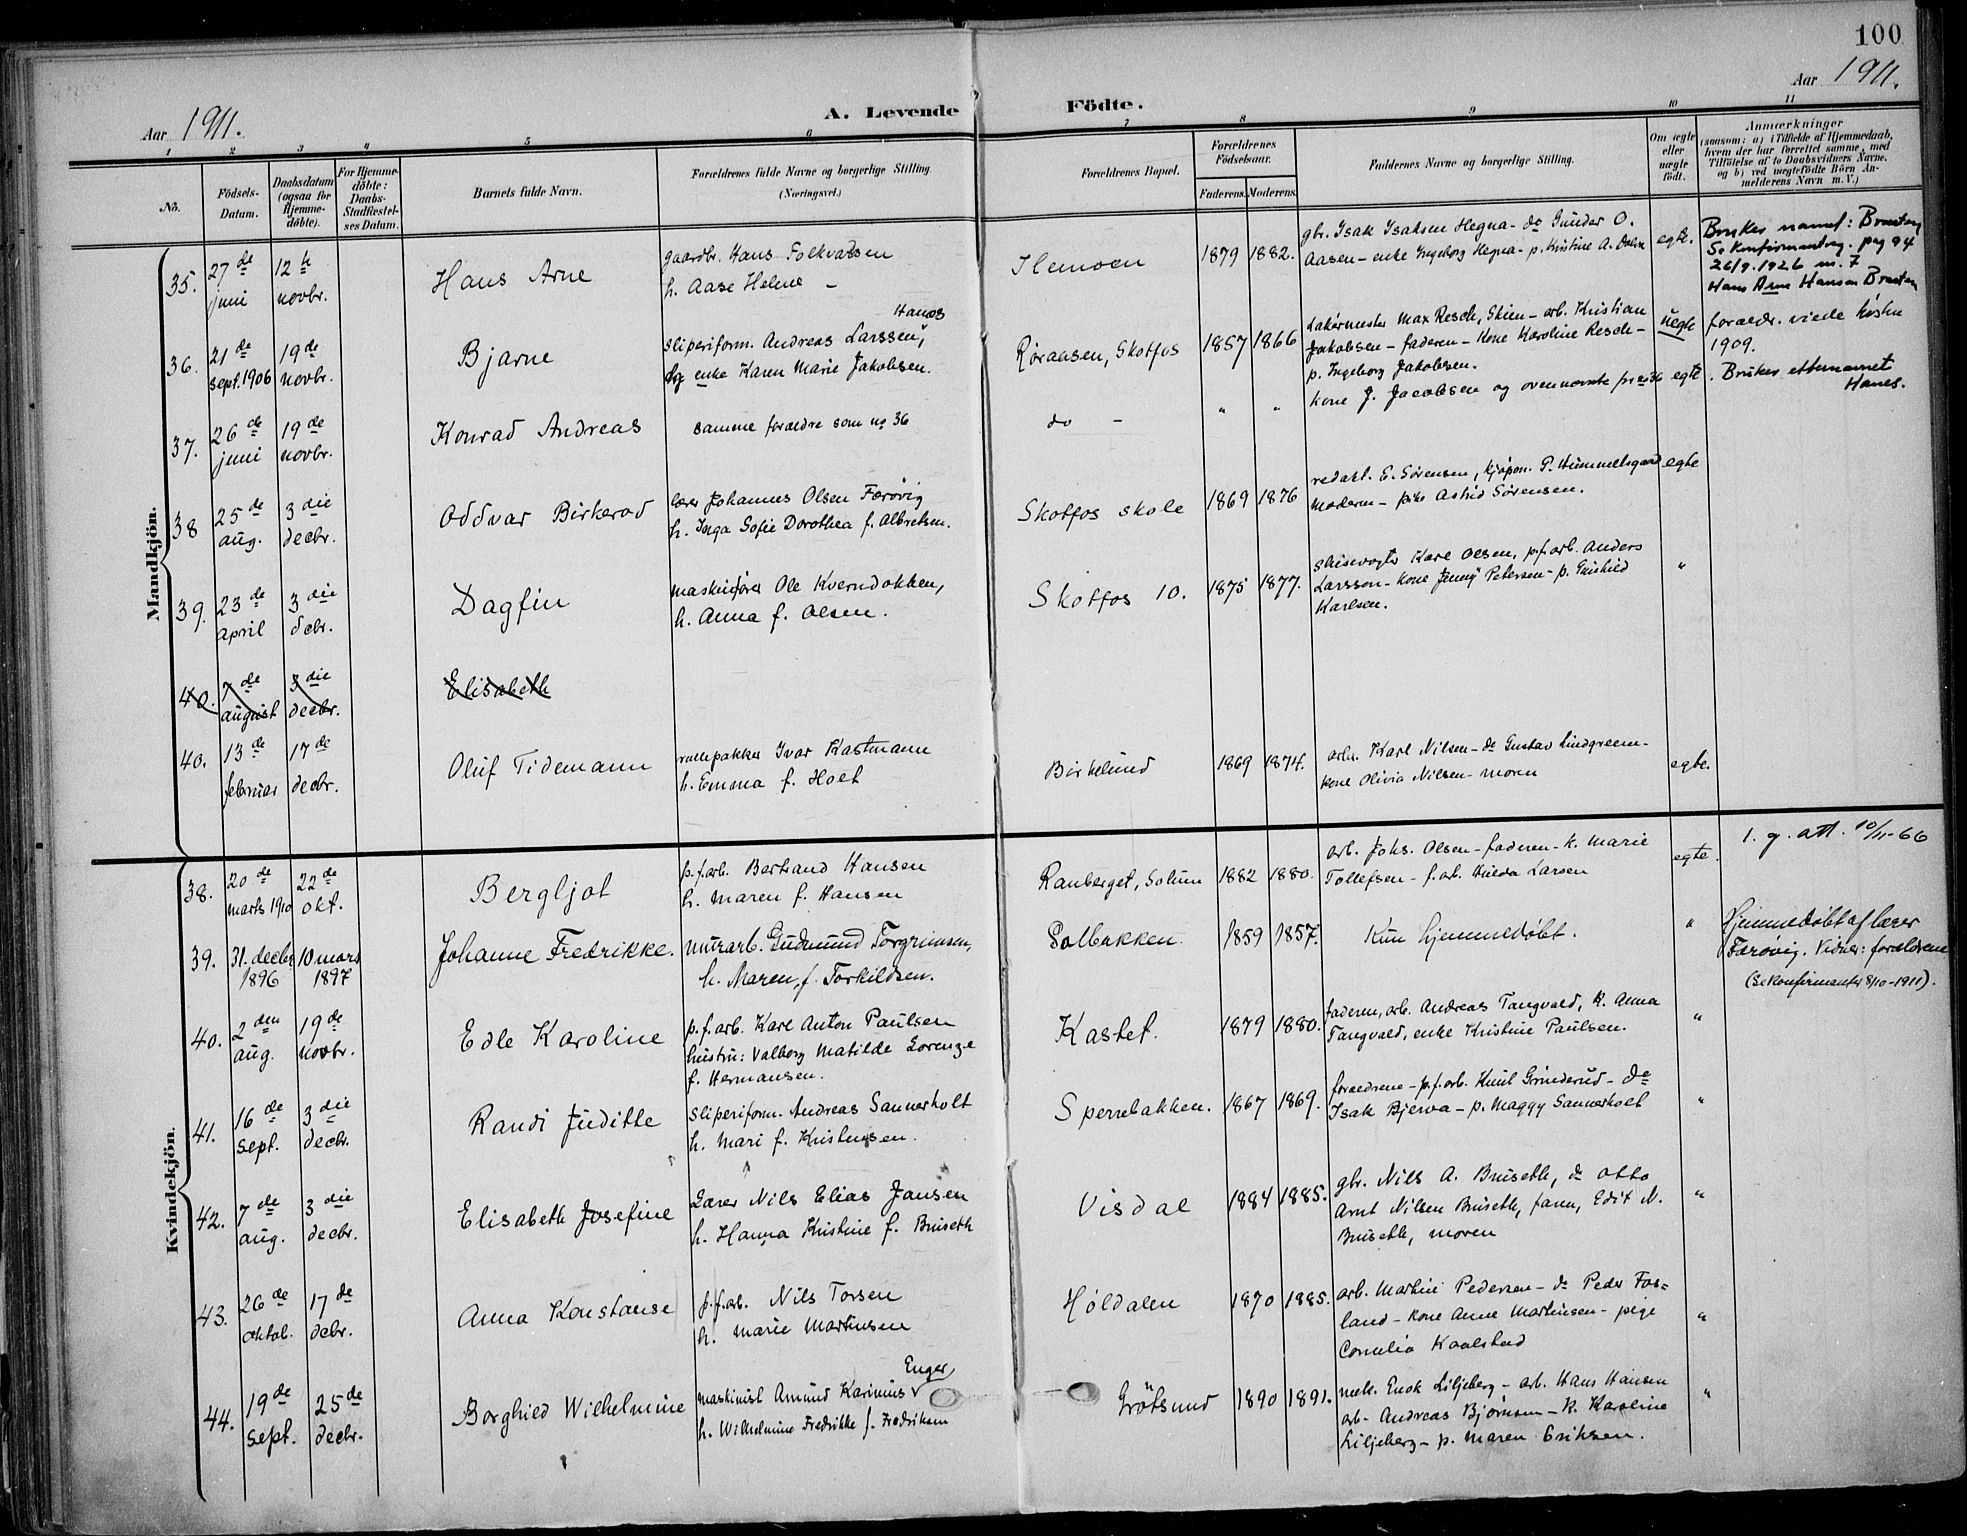 100
Aar 1911.
A. Levende Födte.
Aar 1911.
1 2 3 4 5 6 7 8 9 10 11
No.
Födsels-Datum.
Daabsdatum (ogsaa for Hjemme-döbte).
For Hjemme-döbte: Daabs-Stadfæstel-ses Datum.
Barnets fulde Navn.
Forældrenes fulde Navne og borgerlige Stilling (Næringsvei.)
Forældrenes Bopæl.
Forældrenes Födselsaar.
Faderens. Moderens.
Faddernes Navne og borgerlige Stilling.
Om ægte eller uægte födt.
Anmærkninger
(saasom: a) i Tilfælde af Hjemmedaab,
hvem der har forrettet samme, med
Tilföielse af to Daabsvidners Navne.
og b) ved uægtefödte Börn An-
melderens Navn m.V.)
Mandkjön.
35. 27de juni 12te novbr. Hans Arne
gaardbr. Hans Folkvalsen
h. Aase Helene -
1879 1882.
gbr. Isak Isaksen Hegna - do Gunder O.
Aasen - enke Ingeborg Hegna - p. Kristine A.
egte.
Bruker navnet: Braaten
Se Konfirmantreg. pag 94
26/9.1926 nr. 7
Hans Arne Hansen Braaten
36. 21de sept. 1906 19de novbr. Bjarne
Hanes
sliperiform. Andreas Larssen,
og enke Karen Marie Jakobsen.
Røraasen, Skotfos 1857 1866
Lakermester Max Resch, Skien - arb. Kristian
Jakobsen - faderen - Kone Karoline Resch -
p. Ingeborg Jakobsen.
uegte
forældr. viede høsten
1909.
37. 26de juni 19de novbr. Konrad Andreas
samme forældre som no 36
do - " "
Kone J. Jacobsen og ovennævnte fr no 36
egte
. Bruker etternavnet
Hanes.
38 25de aug. 3die decbr. Oddvar Birkerod
lærer Johannes Olsen Færøvig
h. Inga Sofie Dorothea f. Albretsen.
Skotfos skole 1869 1876
redakt. E. Sørensen, kjøpm. P. Hummelsgaard
Moderen - frk. Astrid Sørensen.
egte
39. 23de april 3die debr. Dagfin
maskinfører Ole Kverndokken,
h. Anna f. Olsen.
Skotfos 10. 1875 1877.
Karl Olsen, p.f.arb. Anders
Larsson - kone Jenny Petersen - p.
Karlsen.
"
40. 7de august 3die decbr. Elisabeth
40. 13de februar 17de decbr. Oluf Tidemann
rullepakker Ivar Kastmann
h. Emma f. Holt
Birkelund 1869 1874.
arb. Karl Nilsen - do Gustav Lindgreen -
kone Olivia Nilsen - moren
egte.
Kvindekjön.
38. 20de marts 1910 22de okt. Bergljot
p.f.arb. Bertrand Hansen
h. Maren f. Hansen
Ranberget, Solum 1882 1880.
arb. Johs. Olsen - faderen - k. Marie
Tollefsen - f.arb. Hulda Larsen
egte.
1. g. att. 10/11-66
39. 31. decbr. 1896 10 mars 1897 Johanne Fredrikke.
murarb. Gudmund Torgrimsen,
h. Maren, f. Torkildsen.
Solbakken. 1859 1857.
Kun hjemmedøbt.
"
Hjemmedøbt af lærer
Færøvig. Vidner: forældrene
(Se konfirmanter 8/10-1911).
40. 2den aug. 19de novbr. Edle Karoline
p.f.arb. Karl Anton Paulsen
hustru: Valborg Matilde Lorenze
f. Hermansen.
Kastet. 1879 1880.
faderen, arb. Andreas Tangvald, k. Anna
Tangvald, enke Kristine Paulsen.
"
41. 16de sept. 3die decbr. Randi Juditte
sliperiform. Andreas Sannerholt
h. Mari f. Kristensen.
Sperrebakken. 1867 1869.
forældrene - p.f.arb. Knut Grinderud - de
Isak Bjerva - p. Maggy Sannerholt
"
42. 7de aug. 3die decbr. Elisabeth Josefine
Lærer Nils Elias Jansen
h. Hanna Kristine f. Bruseth
Visdal 1884 1885.
gbr. Nils A. Bruseth, do Otto
Arnt Nilsen Bruseth, Edit N.
Bruseth, moren
"
43. 26de oktob. 17de debr. Anna Konstanse
p.f.arb. Nils Torsen
h. Marie Martinsen
Høldalen 1870 1885.
arb. Martin Pedersen - do Peder Fos=
land - kone Anne Martinsen - pige
Cornelia Kaalstad
"
44. 19de sept. 25de decbr. Borghild Wilhelmine
Enger,
maskinist Amund Karinius
h. Wilhelmine Fredrikke f. Fredriksen
Grötsund 1890 1891.
mek. Enok Liljeberg - arb. Hans Hansen
arb. Andreas Bjørnsen - k. Karoline
Liljeberg - p. Maren Eriksen.
"